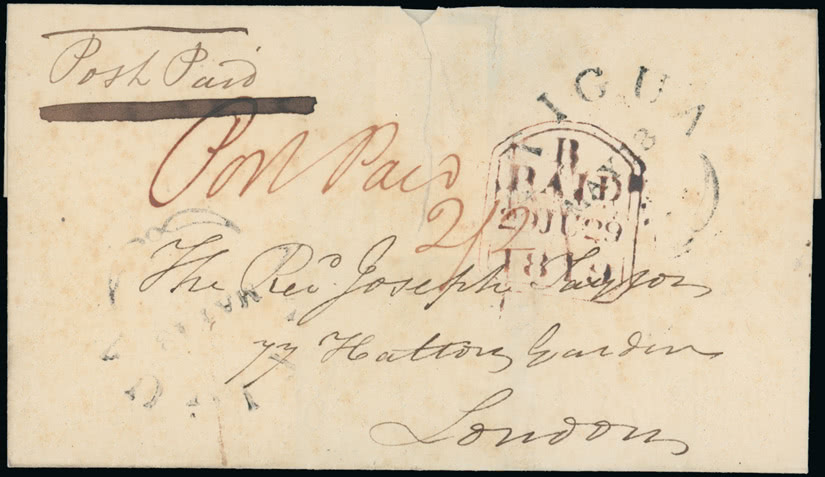 Post Paid
Post Paid
2/2
TIGUA
MAY 8
B
PAID
29 JU 29
1819
The Revd. Joseph Taylor
77 Hatton Garden
London